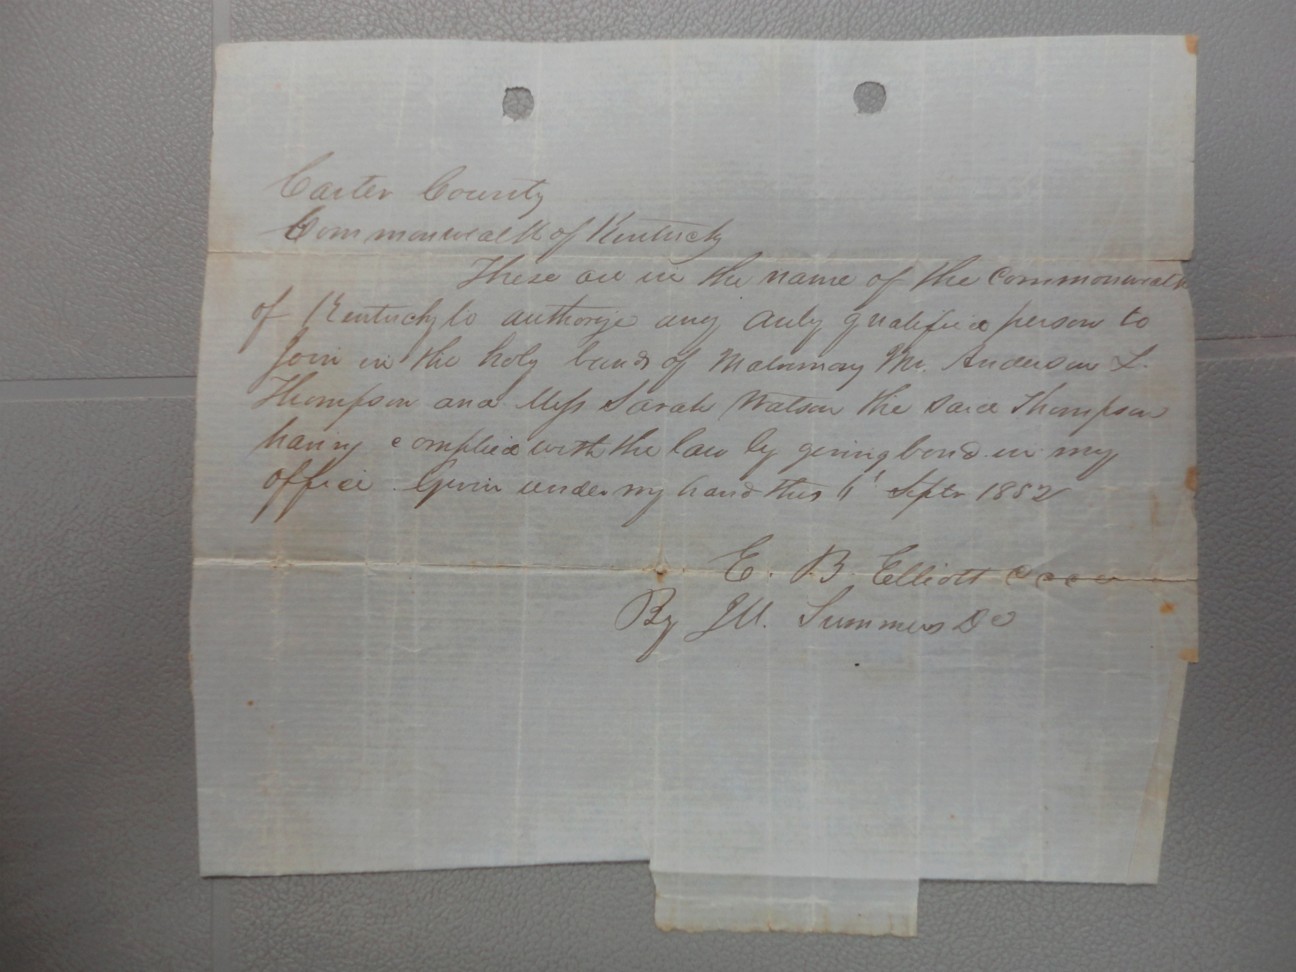 Carter County
Commonwealth of Kentucky
These are in the name of the Commonwealth
of Kentucky to authorize any duly qualified person to
Join in the holy bands of Matrimony Mr. Anderson L.
Thompson and Miss Sarah Watson the said Thompson
having complied with the law by giving bond in my
office. Given under my hand this Septr 1852
E. B. Elliott
By J W. Summers DC